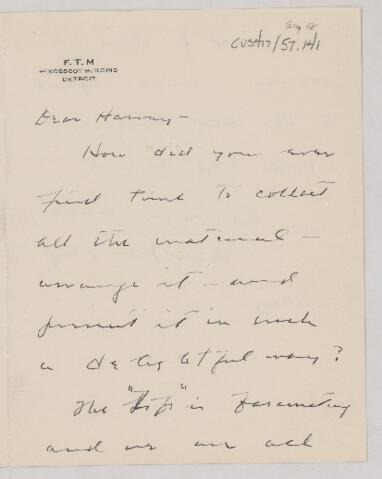 Aug 18
CUSH17/57.141
F. T. M
PENOBSCOT BUILDING
DETROIT
Dear Harvey -
How did you ever
find time to collect
all the material -
arrange it - and
present it in such
a delightful way?
The "Life" is fascinating
and we are all